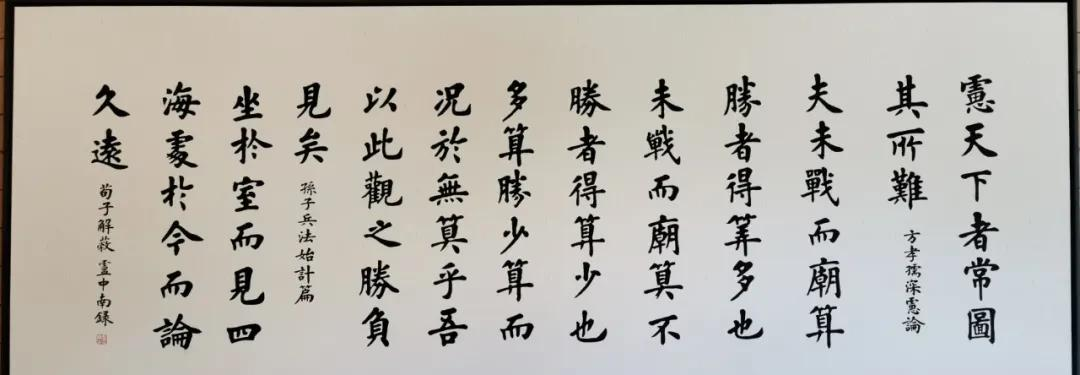 慮天下者常圖
其所難
方孝孺深慮論
夫未戰而廟算
勝者得算多也
未戰而廟算不
勝者得算少也
多算勝少算而
況於無算乎吾
以此觀之勝負
見矣
孫子兵法始計篇
坐於室而見四
海處於今而論
久遠
荀子解蔽 盧中南錄